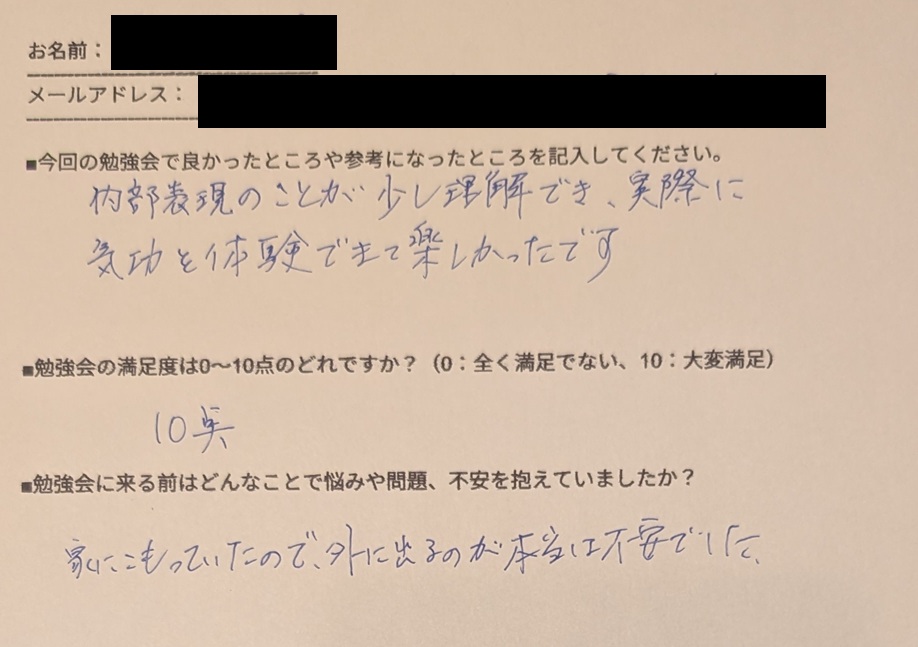 お名前：
メールアドレス：
■今回の勉強会で良かったところや参考になったところを記入してください。
内部表現のことが少し理解でき、実際に
気功を体験できて楽しかったです
■勉強会の満足度は0～10点のどれですか？（0：全く満足でない、10：大変満足）
10点
■勉強会に来る前はどんなことで悩みや問題、不安を抱えていましたか？
家にこもっていたので、外に出るのが本当は不安でした、